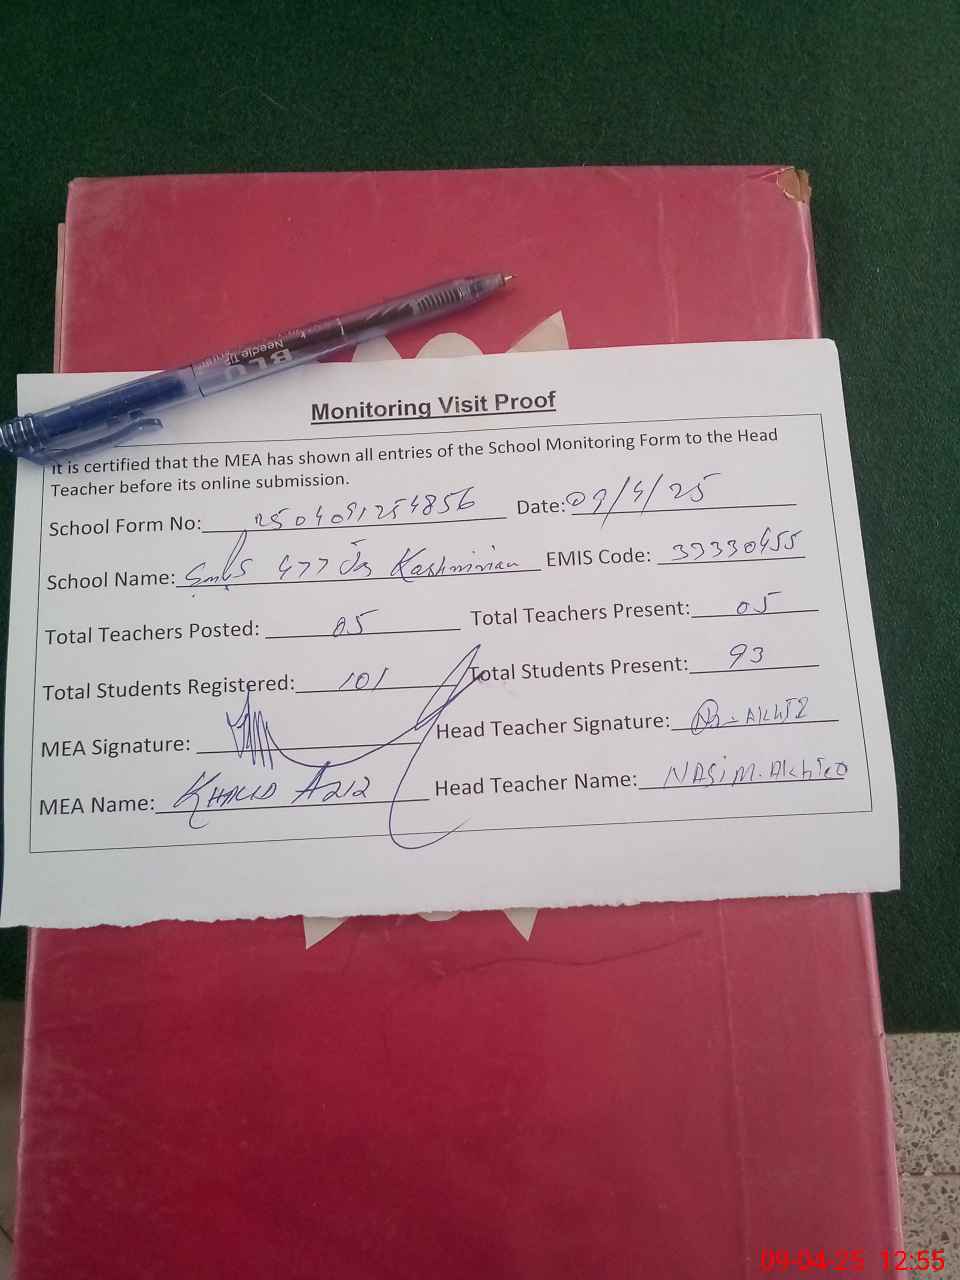 BLU
Needle Tip
Monitoring Visit Proof
It is certified that the MEA has shown all entries of the School Monitoring Form to the Head
Teacher before its online submission.
School Form No: 2504091254856 Date: 09/4/25
School Name: 477 JB Kashmirian EMIS Code: 33330455
Total Teachers Posted: 05 Total Teachers Present: 05
Total Students Registered: 101 Total Students Present: 93
MEA Signature: Head Teacher Signature:
MEA Name: KHALID AZIZ Head Teacher Name: NASiM.
09-04-25 12:55